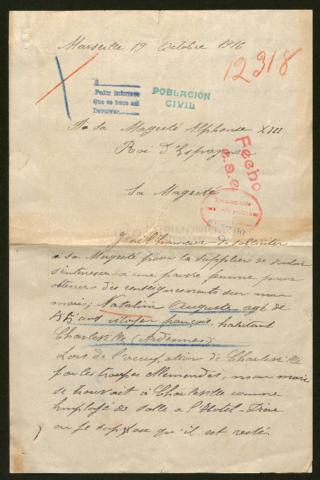 Marseille 19 Octobre 1916
12318
A
Pedir informes
Que se hace así
Devolver
POBLACIÓN
CIVIL
A Sa Majesté Alphonse XIII
Roi d'Espagne
Fecho
Sa Majesté
J'ai l'honneur de
à Sa Majesté pour la supplier de vouloir
s'intéresser à une pauvre femme pour
obtenir des renseignements sur mon
mari, Natalin Auguste agé de
ans citoyen français, habitant
Charleville (Ardennes)
Lors de l'occupation de Charleville
par les troupes Allemandes, mon mari
se trouvait à Charleville comme
Employé de Salle à l'Hotel-Dieu
ou je suppose qu'il est resté.